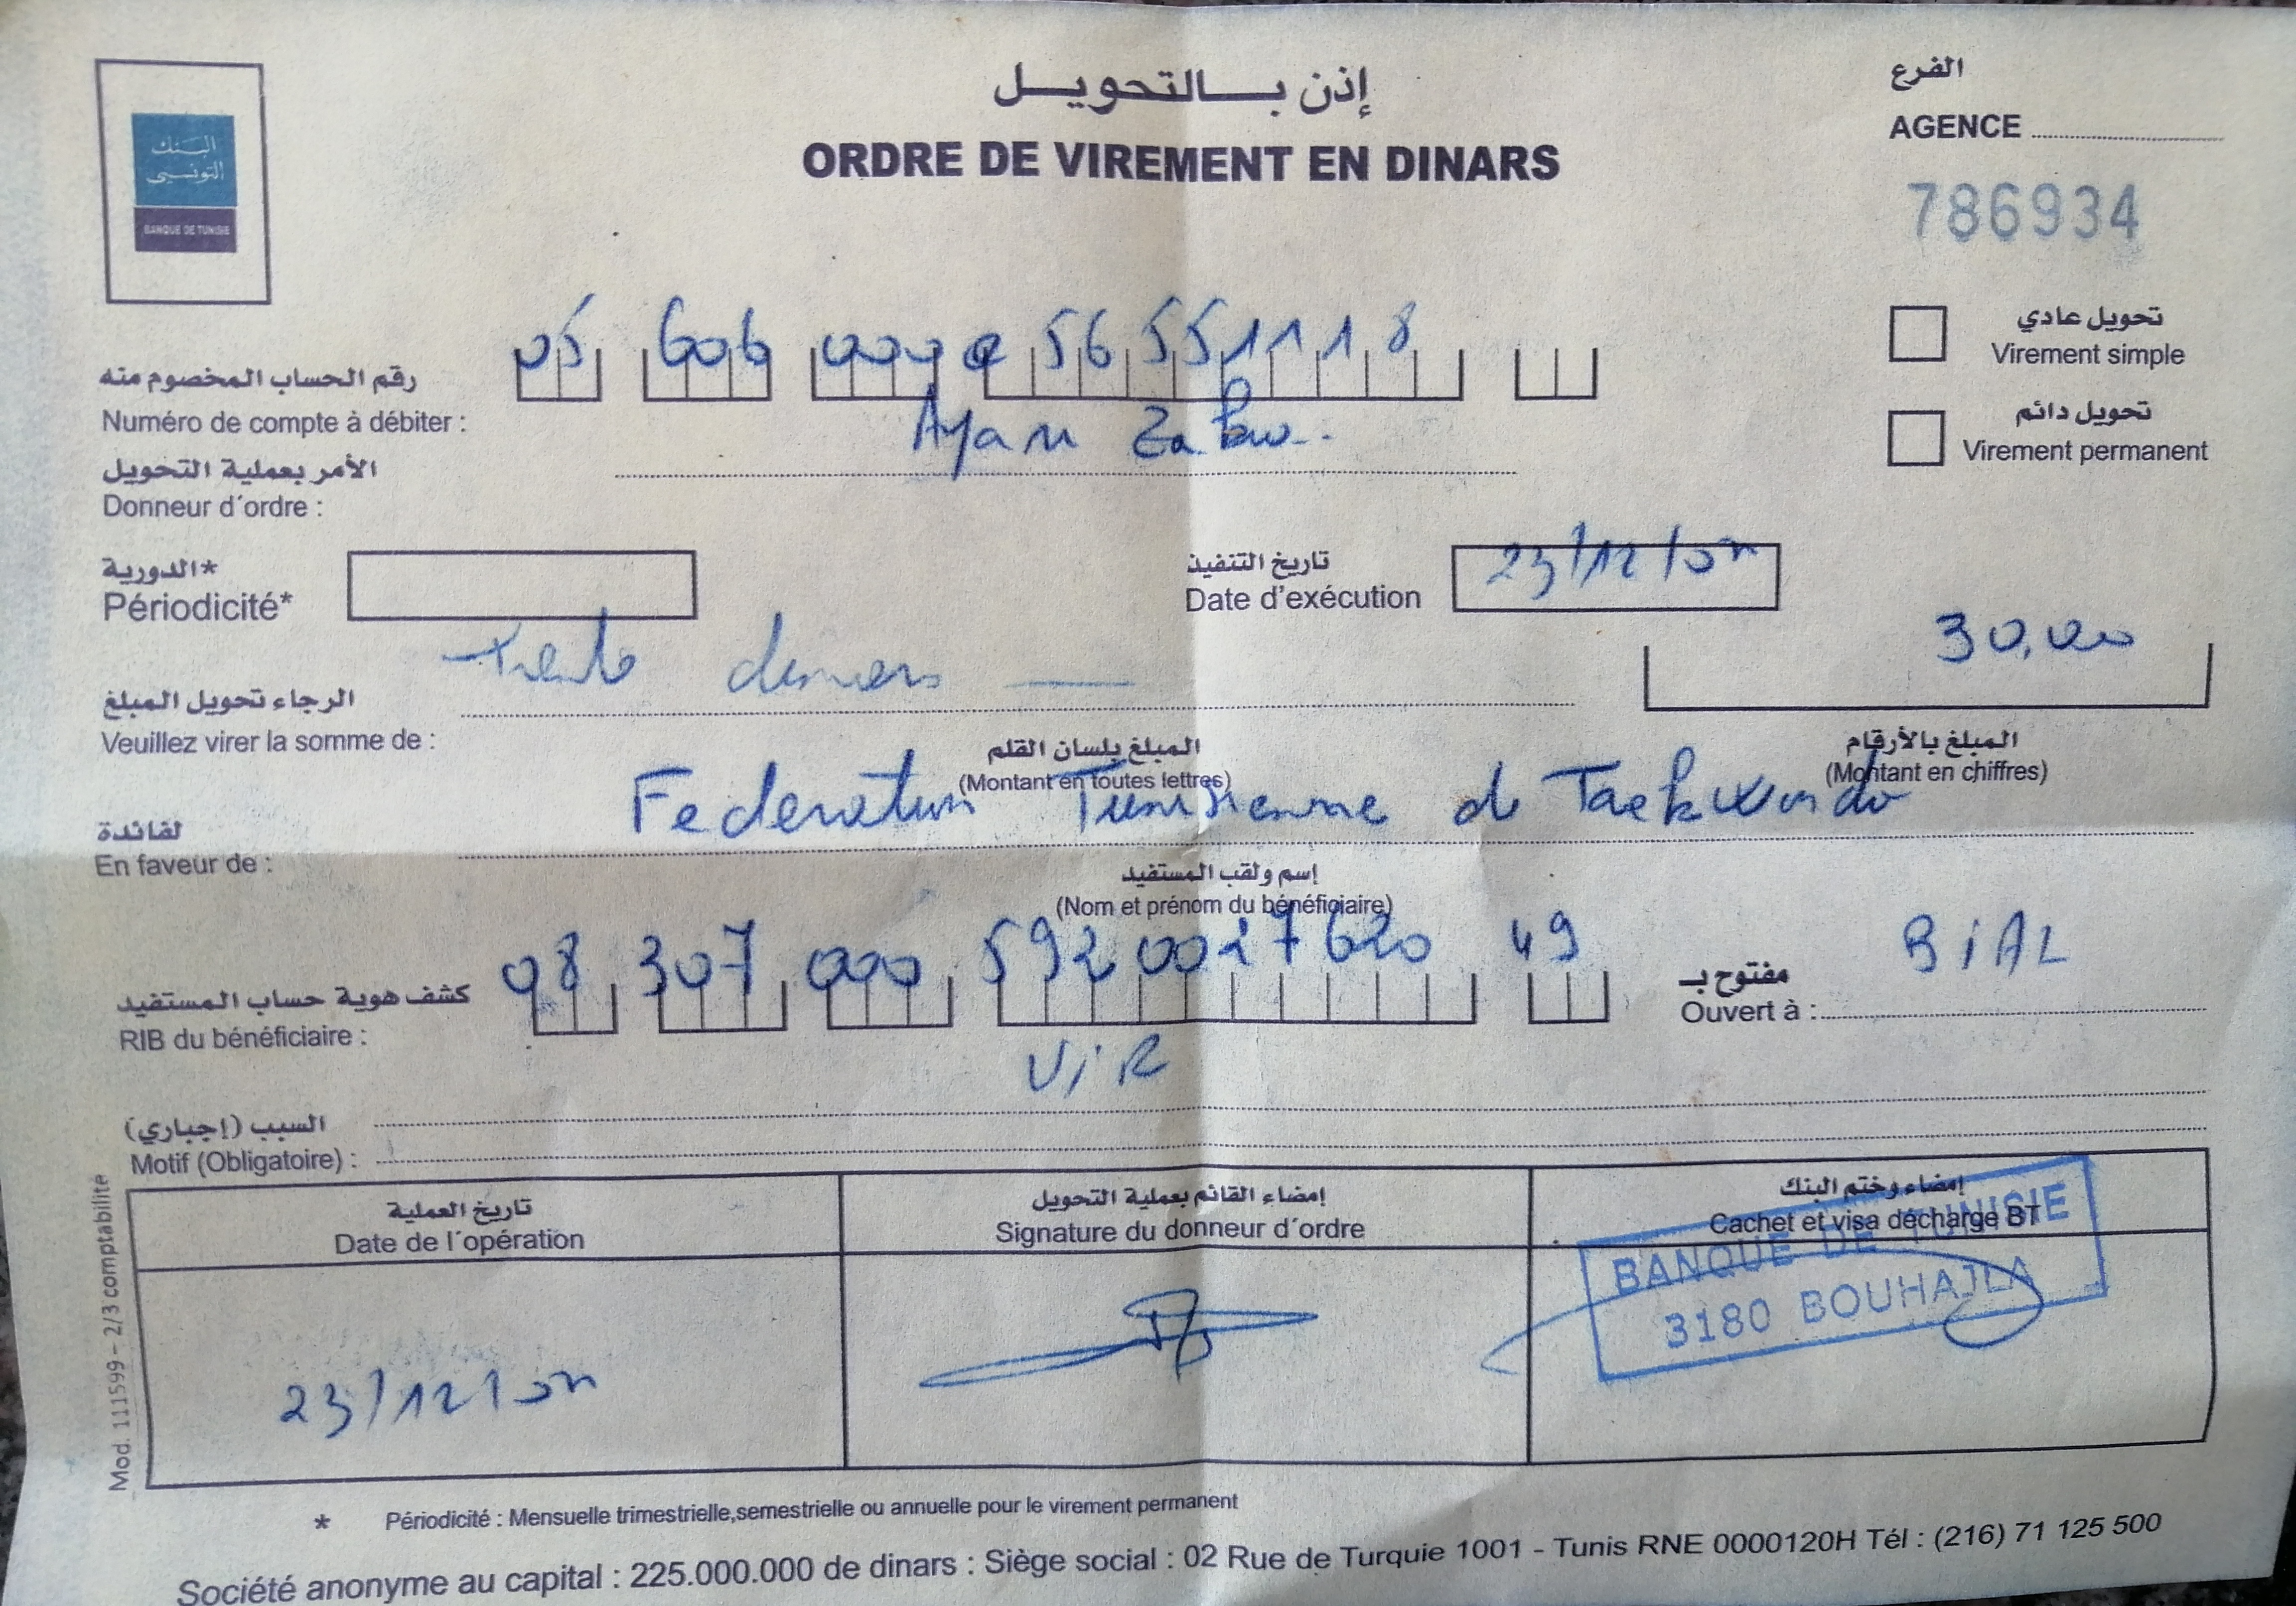 البنك
التونسي
BANQUE DE TUNISIE
إذن بالتحويل
ORDRE DE VIREMENT EN DINARS
الفرع
AGENCE
786934
تحويل عادي
Virement simple
تحويل دائم
Virement permanent
05 606 000 56 55 111 8
رقم الحساب المخصوم منه
Numéro de compte à débiter :
الأمر بعملية التحويل
Donneur d'ordre :
*الدورية
Périodicité*
تاريخ التنفيذ
Date d'exécution
23/12/
30,000
trente dinars
الرجاء تحويل المبلغ
Veuillez virer la somme de :
المبلغ بلسان القلم
(Montant en toutes lettres)
المبلغ بالأرقام
(Montant en chiffres)
Federation Tunisienne d Taekwondo
لفائدة
En faveur de :
إسم ولقب المستفيد
(Nom et prénom du bénéficiaire)
08 307 000 5920027620 49
كشف هوية حساب المستفيد
RIB du bénéficiaire :
مفتوح بـ
Ouvert à :
BiAL
ViR
السبب (إجباري)
Motif (Obligatoire) :
تاريخ العملية
Date de l'opération
إمضاء القائم بعملية التحويل
Signature du donneur d'ordre
إمضاء وختم البنك
Cachet et visa décharge BT
BANQUE DE TUNISIE
3180 BOUHAJLA
23/12/
Mod. 111599 – 2/3 comptabilité
* Périodicité : Mensuelle trimestrielle,semestrielle ou annuelle pour le virement permanent
Société anonyme au capital : 225.000.000 de dinars : Siège social : 02 Rue de Turquie 1001 - Tunis RNE 0000120H Tél : (216) 71 125 500